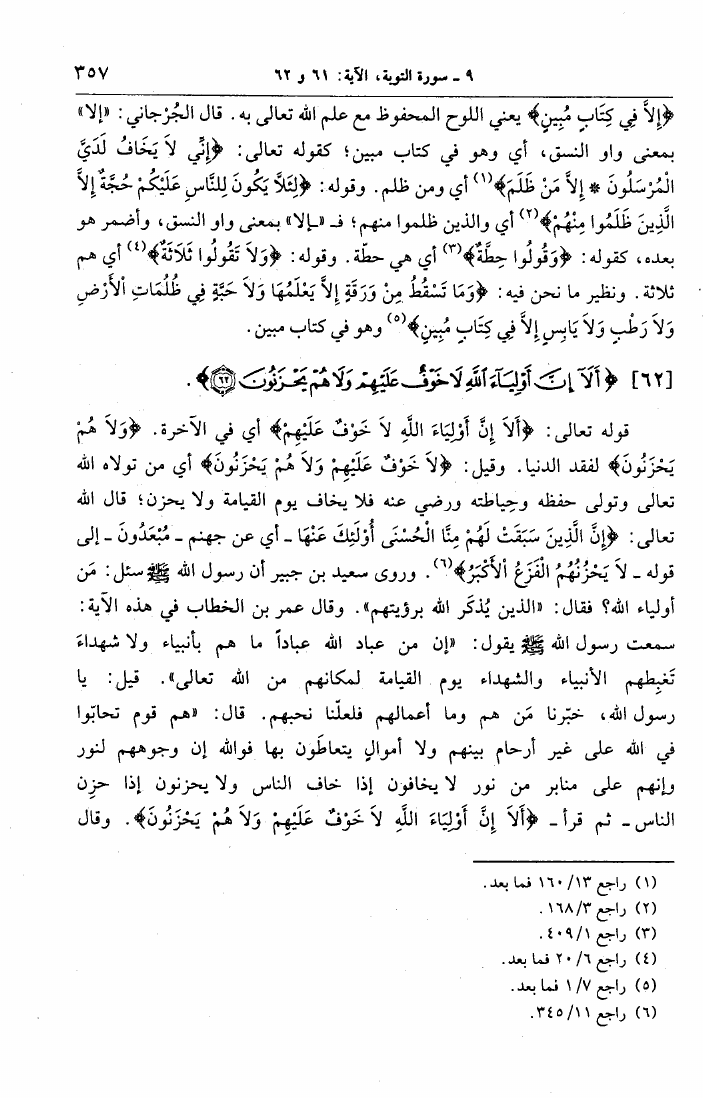 ٩ ـ سورة التوبة، الآية: ٦١ و ٦٢ ٣٥٧
﴿إِلاَّ فِي كِتَابٍ مُبِينٍ﴾ يعني اللوح المحفوظ مع علم الله تعالى به. قال الجُرْجاني: «إلا»
بمعنى واو النسق، أي وهو في كتاب مبين؛ كقوله تعالى: ﴿إِنِّي لاَ يَخَافُ لَدَيَّ
الْمُرْسَلُونَ * إِلاَّ مَنْ ظَلَمَ﴾(١) أي ومن ظلم. وقوله: ﴿لِئَلاَّ يَكُونَ لِلنَّاسِ عَلَيْكُمْ حُجَّةٌ إِلاَّ
الَّذِينَ ظَلَمُوا مِنْهُمْ﴾(٢) أي والذين ظلموا منهم؛ فـ «ـإلا» بمعنى واو النسق، وأضمر هو
بعده، كقوله: ﴿وَقُولُوا حِطَّةٌ﴾(٣) أي هي حطّة. وقوله: ﴿وَلاَ تَقُولُوا ثَلاَثَةٌ﴾(٤) أي هم
ثلاثة. ونظير ما نحن فيه: ﴿وَمَا تَسْقُطُ مِنْ وَرَقَةٍ إِلاَّ يَعْلَمُهَا وَلاَ حَبَّةٍ فِي ظُلُمَاتِ الْأَرْضِ
وَلاَ رَطْبٍ وَلاَ يَابِسٍ إِلاَّ فِي كِتَابٍ مُبِينٍ﴾(٥) وهو في كتاب مبين.
[٦٢] ﴿أَلَآ إِنَّ أَوْلِيَآءَ ٱللَّهِ لَا خَوْفٌ عَلَيْهِمْ وَلَا هُمْ يَحْزَنُونَ ۝٦٢﴾.
قوله تعالى: ﴿أَلاَ إِنَّ أَوْلِيَاءَ اللَّهِ لاَ خَوْفٌ عَلَيْهِمْ﴾ أي في الآخرة. ﴿وَلاَ هُمْ
يَحْزَنُونَ﴾ لفقد الدنيا. وقيل: ﴿لاَ خَوْفٌ عَلَيْهِمْ وَلاَ هُمْ يَحْزَنُونَ﴾ أي من تولاه الله
تعالى وتولى حفظه وحِياطته ورضي عنه فلا يخاف يوم القيامة ولا يحزن؛ قال الله
تعالى: ﴿إِنَّ الَّذِينَ سَبَقَتْ لَهُمْ مِنَّا الْحُسْنَى أُوْلَئِكَ عَنْهَا ـ أي عن جهنم ـ مُبْعَدُونَ ـ إلى
قوله ـ لاَ يَحْزُنُهُمُ الْفَزَعُ الْأَكْبَرُ﴾(٦). وروى سعيد بن جبير أن رسول الله ﷺ سئل: مَن
أولياء الله؟ فقال: «الذين يُذكَر الله برؤيتهم». وقال عمر بن الخطاب في هذه الآية:
سمعت رسول الله ﷺ يقول: «إن من عباد الله عباداً ما هم بأنبياء ولا شهداءَ
تَغبِطهم الأنبياء والشهداء يوم القيامة لمكانهم من الله تعالى». قيل: يا
رسول الله، خبّرنا مَن هم وما أعمالهم فلعلّنا نحبهم. قال: «هم قوم تحابّوا
في الله على غير أرحام بينهم ولا أموالٍ يتعاطَون بها فوالله إن وجوههم لنور
وإنهم على منابر من نور لا يخافون إذا خاف الناس ولا يحزنون إذا حزِن
الناس ـ ثم قرأ ـ ﴿أَلاَ إِنَّ أَوْلِيَاءَ اللَّهِ لاَ خَوْفٌ عَلَيْهِمْ وَلاَ هُمْ يَحْزَنُونَ﴾. وقال
(١) راجع ١٦٠/١٣ فما بعد.
(٢) راجع ١٦٨/٣.
(٣) راجع ٤٠٩/١.
(٤) راجع ٢٠/٦ فما بعد.
(٥) راجع ١/٧ فما بعد.
(٦) راجع ٣٤٥/١١.